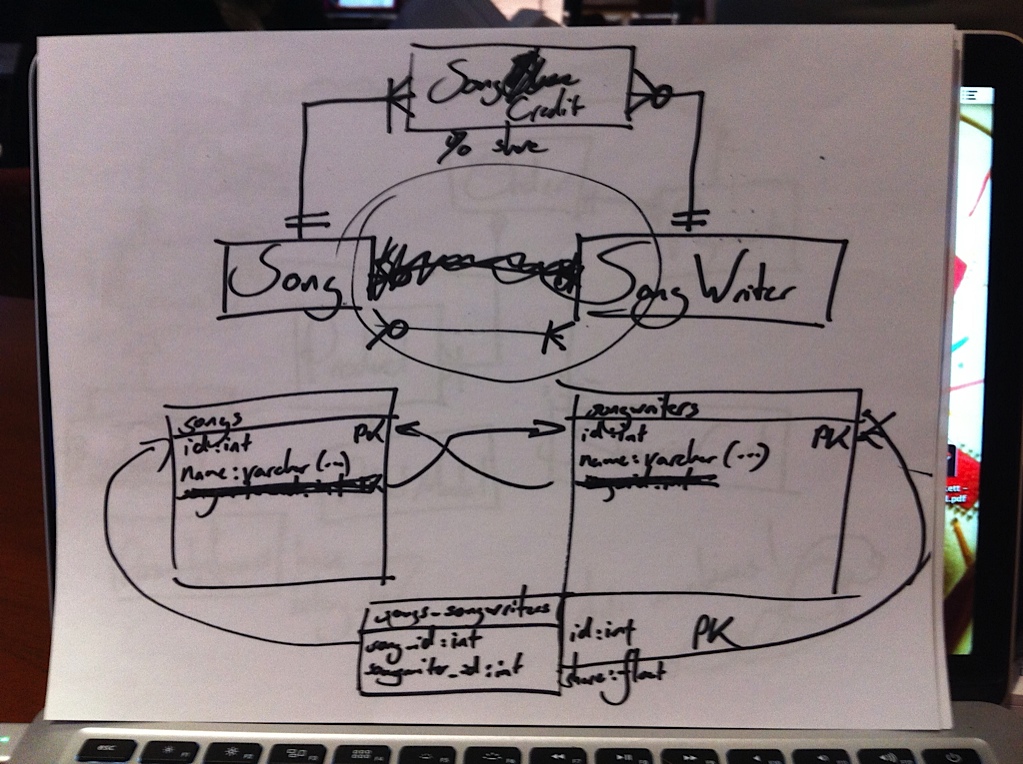 Song
Credit
% share
Song
Song Writer
songs
id:int PK
name:varchar(...)
songwriters
id:int PK
name:varchar(...)
songs_songwriters
song_id:int
songwriter_id:int
id:int PK
share:float
esc